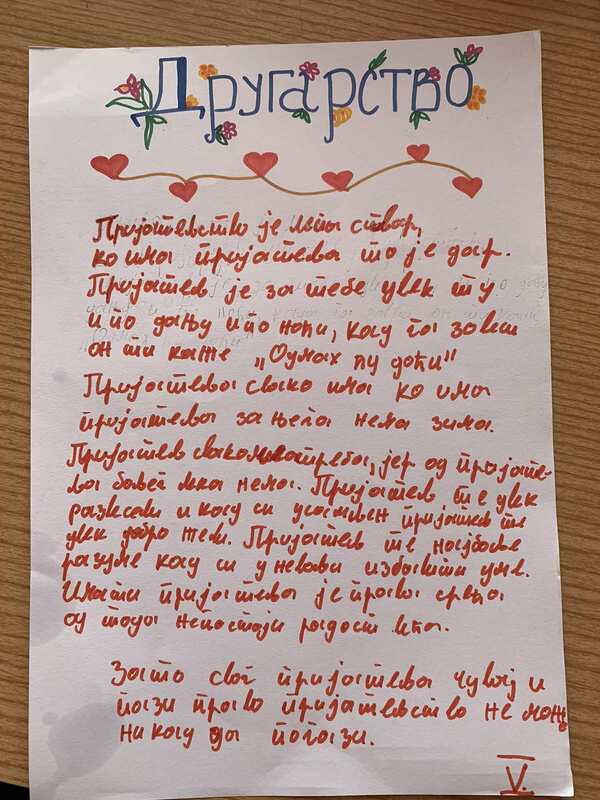 Другарство
Пријатевство је лепа ствар,
ко има пријатева то је дар.
Пријатев је за тебе увек ту
и по дању и по ноћи, кад га зовеш
он ти каже „Одмах ћу доћи"
Пријатева свако има ко има
пријатева за њега нема зима.
Пријатев свакоме треба, јер од пријате-
ва бовег лка нема. Пријатев те увек
развесели и кад си усамвен пријатев те
увек добро теши. Пријатев те најбове
разуме кад си у неваи избавити уме.
Имати пријатева је права срећа
од тога непостаји радост већа.
Зато свог пријатева чувај и
пази право пријатевство не може
никад да погази.
V.